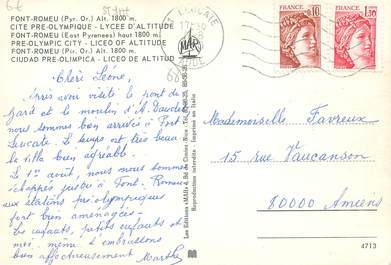 FONT-ROMEU (Pyr. Or.) Alt. 1800 m.
CITE PRE-OLYMPIQUE - LYCEE D'ALTITUDE
FONT-ROMEU (East Pyrenees) haut 1800 m.
PRE-OLYMPIC CITY - LICEO OF ALTITUDE
FONT-ROMEU (Pyr. Or.) Alt. 1800 m.
CIUDAD PRE-OLIMPICA - LICEO DE ALTITUD
Chère Léone,
Après avoir visité le pont du
Gard et le moulin d'A. Daudet
nous sommes bien arrivés à Port
Leucate. Le temps est très beau
la ville bien agréable.
Le 1er août, nous nous sommes
échappés jusqu'à Font-Romeu
aux stations pré olympiques
fort bien aménagées.
Les enfants, petits enfants et
moi-même t'embrassons
bien affectueusement Marthe
Les Editions "MAR"
Reproduction interdite - Imprimé en Italie
MAR
LEUCATE
17H30
AUDE
0,10
1,20
Mademoiselle Favreux
15 rue Vaucanson
80000 Amiens
4713